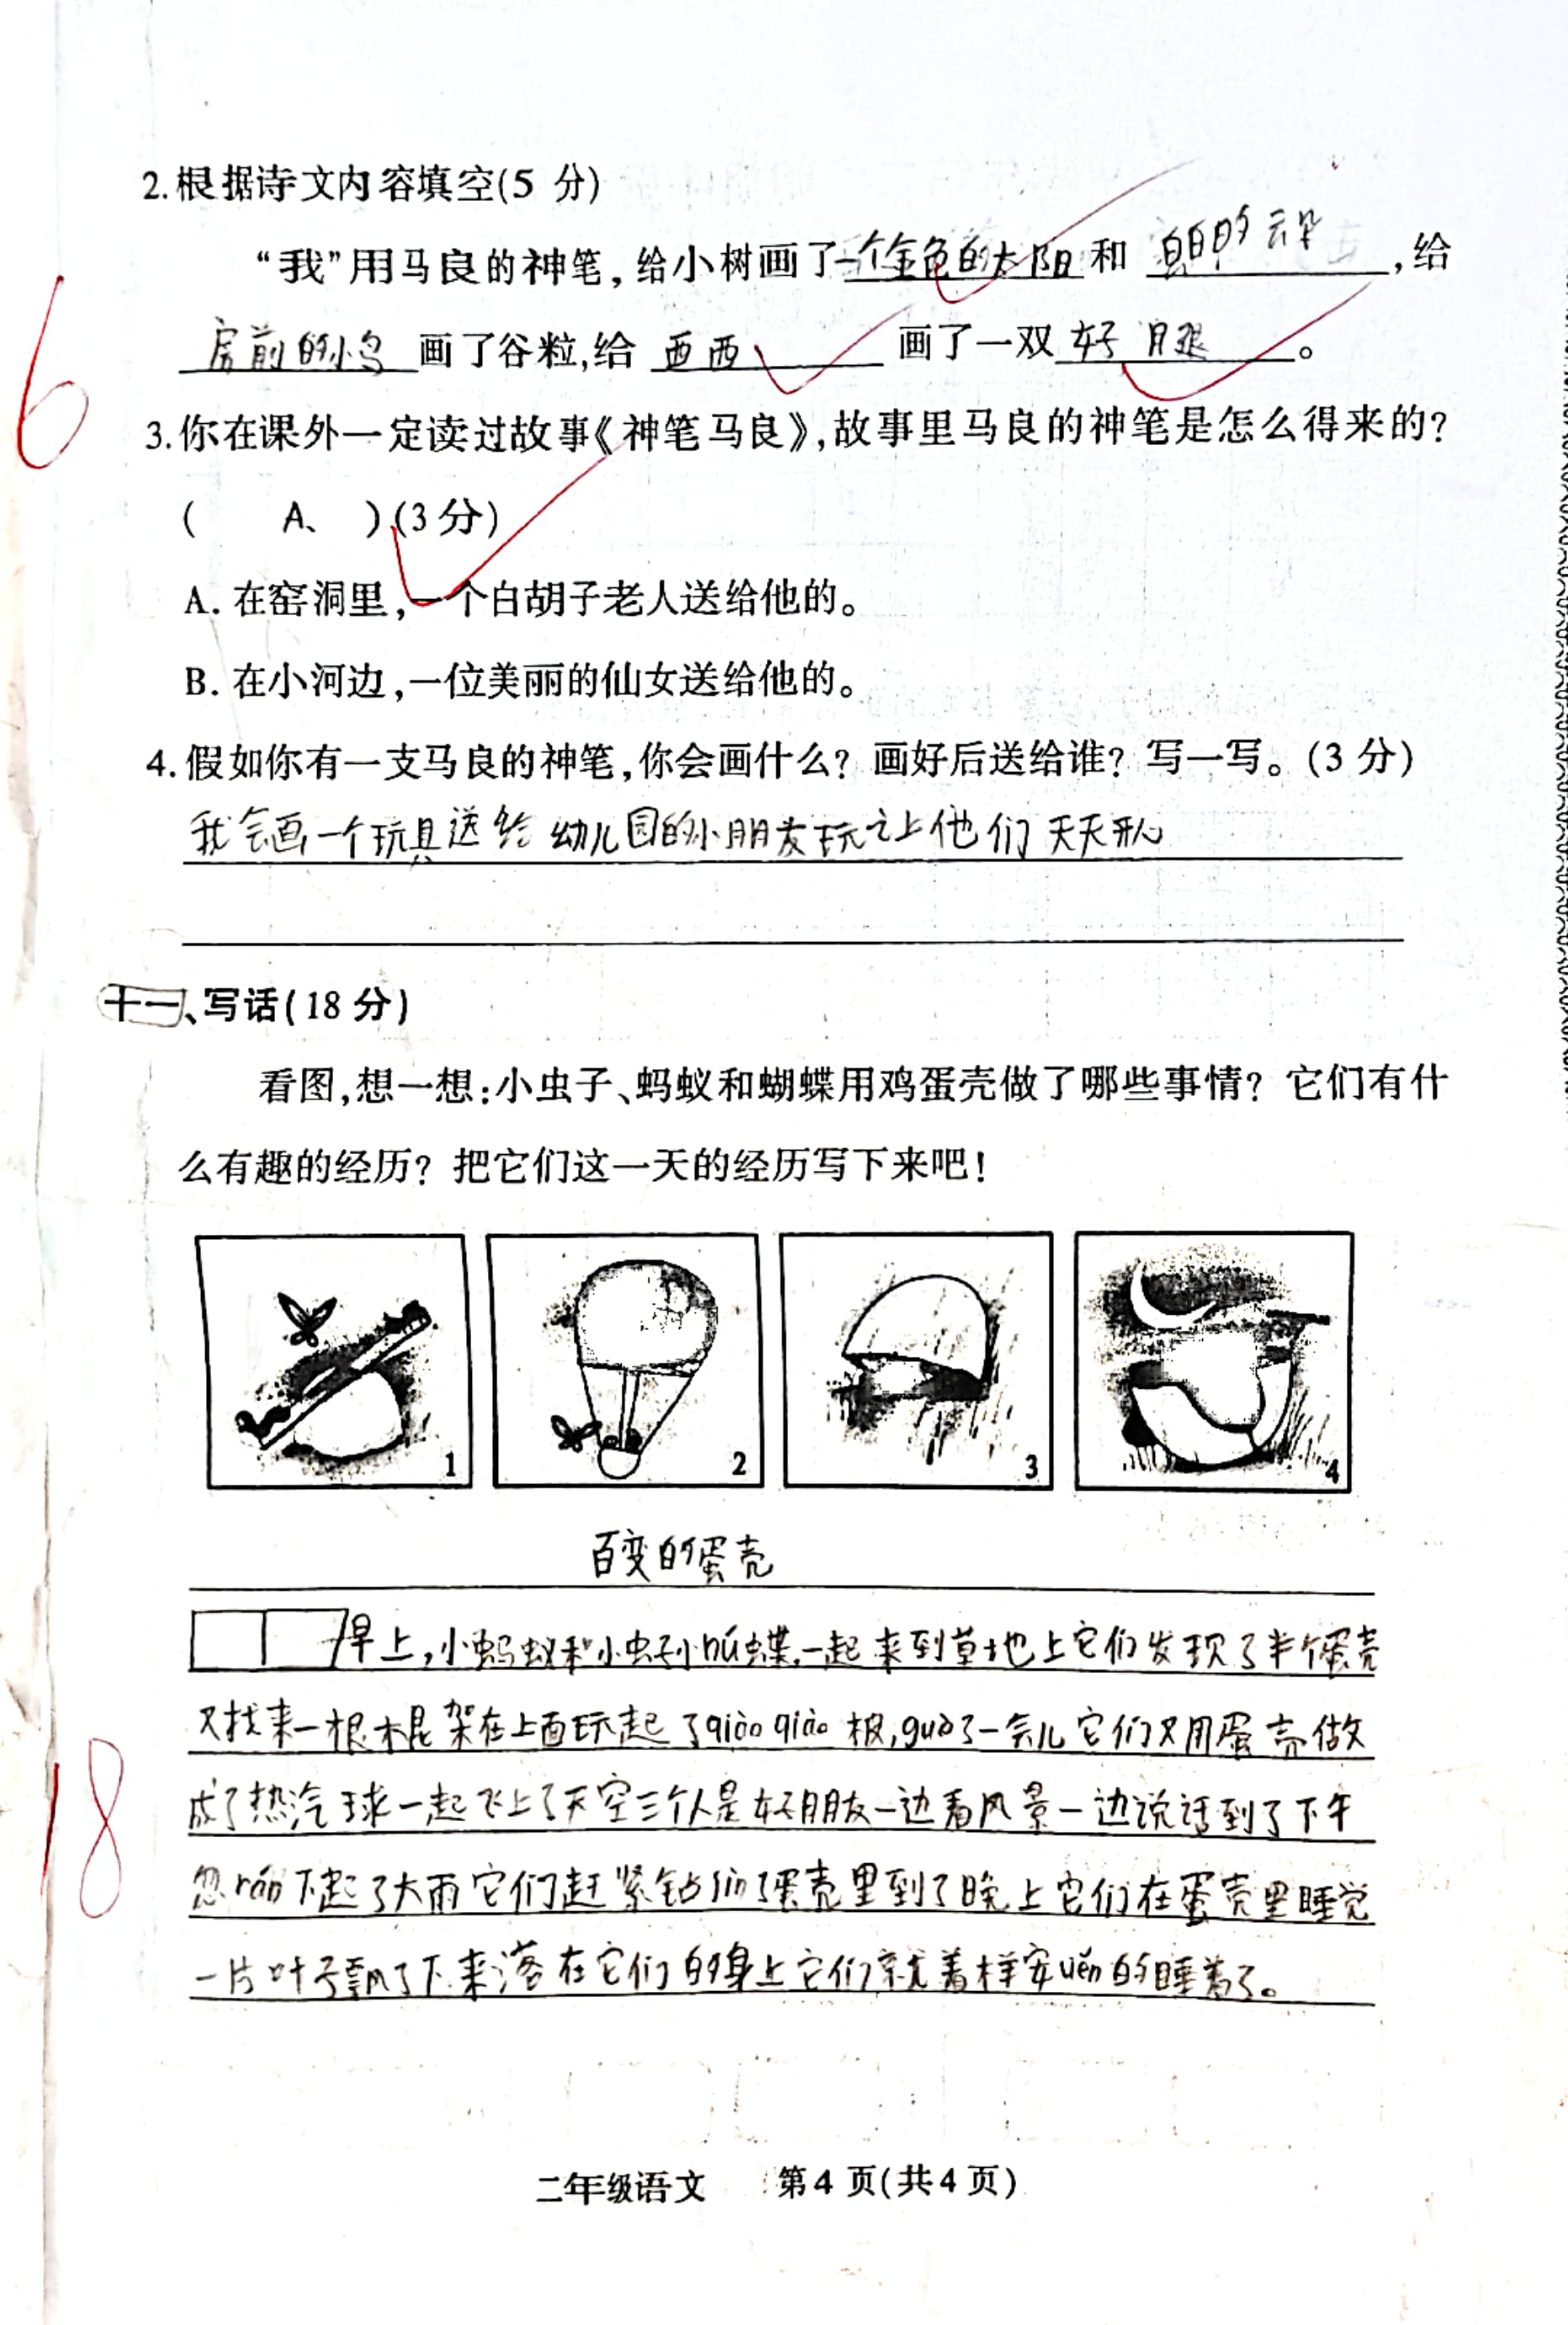 2.根据诗文内容填空(5 分)
“我”用马良的神笔,给小树画了一个金色的太阳和 白的云朵,给
房前的小鸟画了谷粒,给 西西 画了一双好 腿。
6
3.你在课外一定读过故事《神笔马良》,故事里马良的神笔是怎么得来的?
( A、 )(3分)
A. 在窑洞里,一个白胡子老人送给他的。
B. 在小河边,一位美丽的仙女送给他的。
4.假如你有一支马良的神笔,你会画什么? 画好后送给谁? 写一写。(3 分)
我会画一个玩具送给幼儿园的小朋友玩让他们天天开心
十一、写话(18 分)
看图,想一想:小虫子、蚂蚁和蝴蝶用鸡蛋壳做了哪些事情? 它们有什
么有趣的经历? 把它们这一天的经历写下来吧!
1
2
3
4
百变的蛋壳
早上,小蚂蚁和小虫子小hú蝶,一起来到草地上它们发现了半个蛋壳
又找来一根木棍架在上面玩起了qiāo qiāo板,guò了一会儿它们又用蛋壳做
成了热汽球一起飞上了天空三个人是好朋友一边看风景一边说话到了下午
忽rán下起了大雨它们赶紧钻jìn了蛋壳里到了晚上它们在蛋壳里睡觉
一片叶子飘了下来落在它们的身上它们就着样安wěn的睡着了。
18
二年级语文 第4 页(共4页)